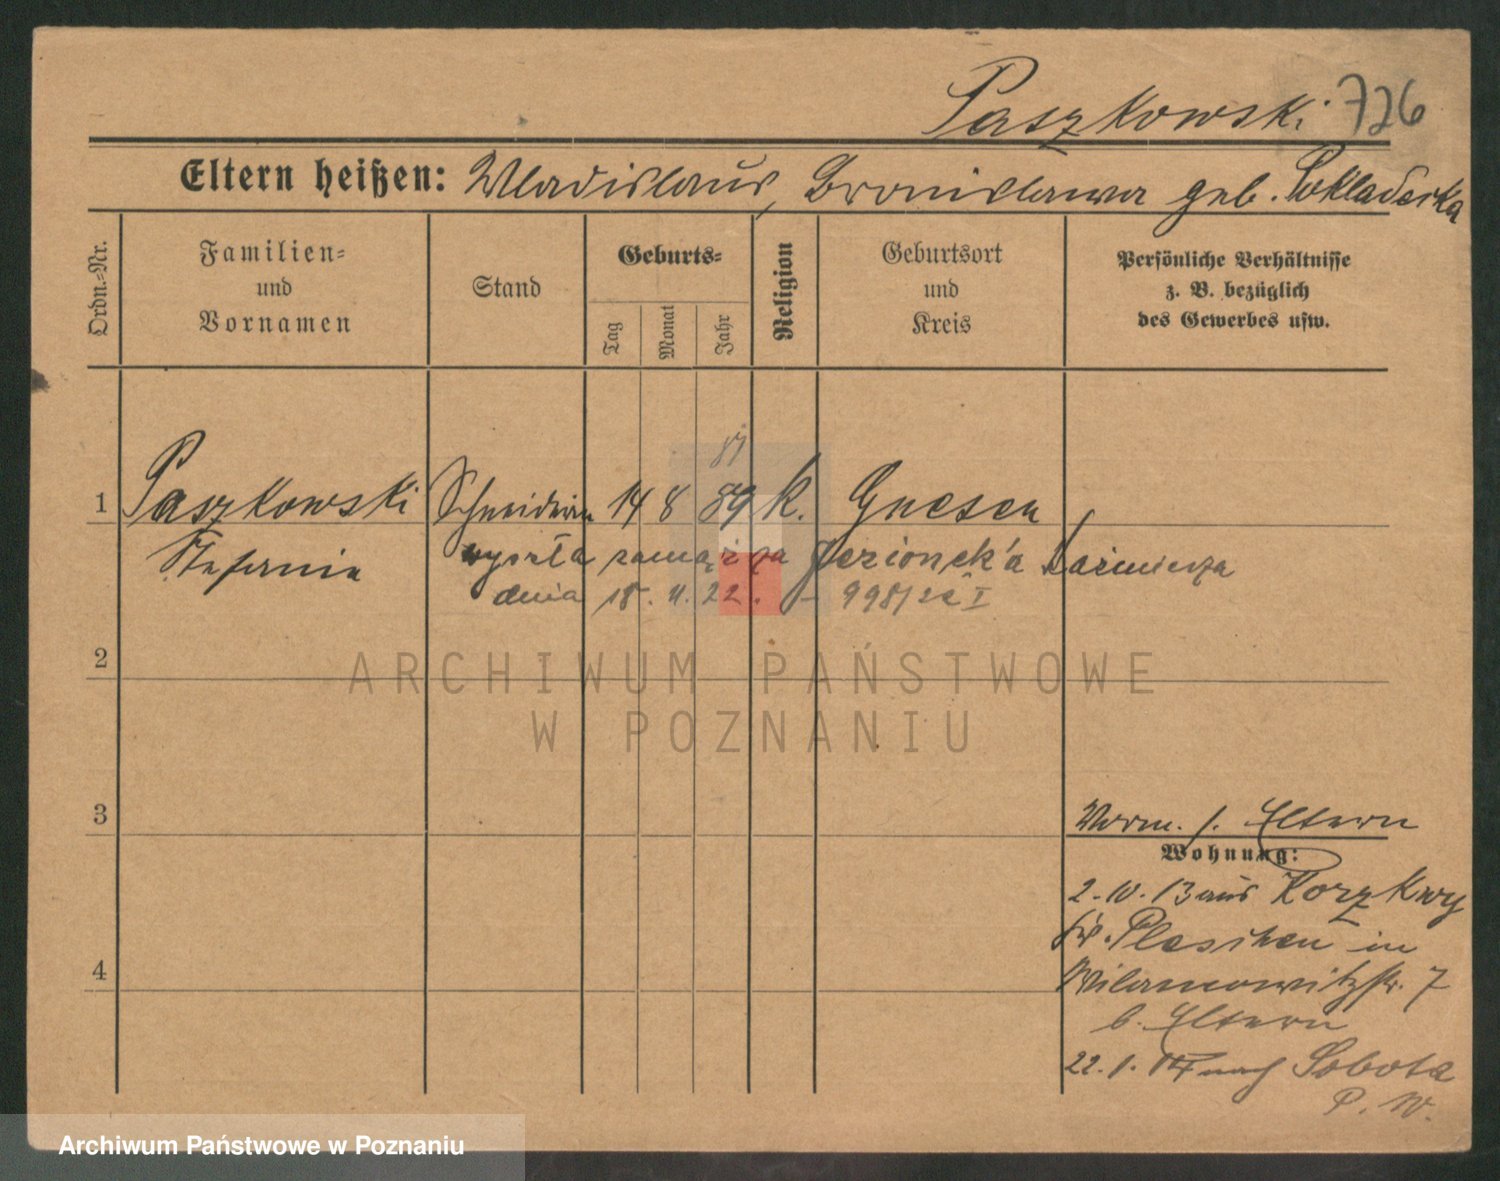 Paszkowski 726
Eltern heißen: Wladislaus, Bronislawa geb. Pokladecka
Ordn.-Nr.
Familien-
und
Vornamen
Stand
Geburts-
Tag
Monat
Jahr
Religion
Geburtsort
und
Kreis
Persönliche Verhältnisse
z. B. bezüglich
des Gewerbes usw.
1 Paszkowski Schneiderin 14 8 89 k. Gnesen
Stefania wyszła zamąż za Kaźmierza
dnia 18. 22. - 998/22 I
2
ARCHIWUM PAŃSTWOWE
W POZNANIU
3
Verm. s. Eltern
Wohnung:
2.10.13 aus Korzkwy
Kr. Pleschen in
4
Wilamowitzstr. 7
b. Eltern
22.1. 14 nach Sobota
P. W.
Archiwum Państwowe w Poznaniu